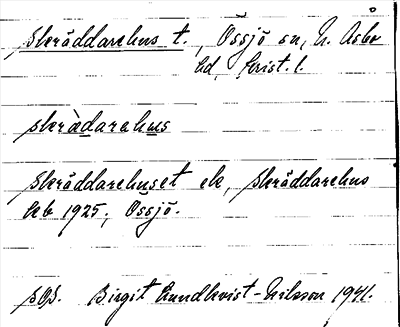 Skräddarehus t., Össjö sn, N. Åsbo
hd, Krist. l.
skrædarehus
Skräddarehuset ek, Skräddarehus
hb 1925, Össjö.
sOs. Birgit Lundkvist-Nilsson 1941.